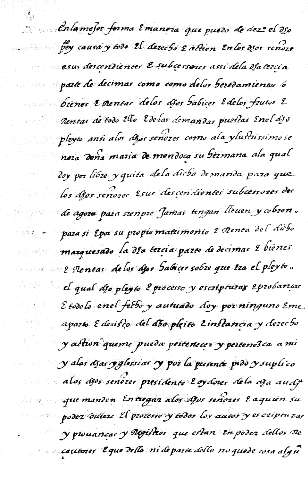 En la mejor forma E manera que puedo de dezir el dho
E sus descendientes E subcesores assi de la dha tercia
parte de decimas como de los heredamientos E
bienes E Rentas de los dhos habices E de los frutos E
Rentas de todo ello E de las demandas puestas En el dho
pleyto ansi a los dhos señores como a la yllustrissima se
ñora doña maria de mendoça su hermana a la qual
doy por libre y quita de la dicha demanda para que
los dhos señores E sus descendientes subcesores des
de agora para siempre Jamas tengan lleven y cobren
para si E por su propio matrimonio E Renta del dicho
marquesado la dha tercia parte de decimas E bienes
E Rentas de los dhos habices sobre que era el pleyto
el qual dho pleyto E processo y escripturas E probanças
E todo lo en el fecho y autuado doy por ninguno E me
aparto E desisto del dho pleito E instancia y derecho
y action que me pueda pertenecer y pertenesca a mi
y a los dhas yglesias y por la presente pido y suplico
a los dhos señores presidente E oydores de la dha audiª
que manden Entregar a los dhos señores E a quien su
poder oviere El processo y todos los autos y escripturas
y provanças y Registros que estan En poder de los Re
ceptores E que dello ni de parte dello no quede cosa alguª